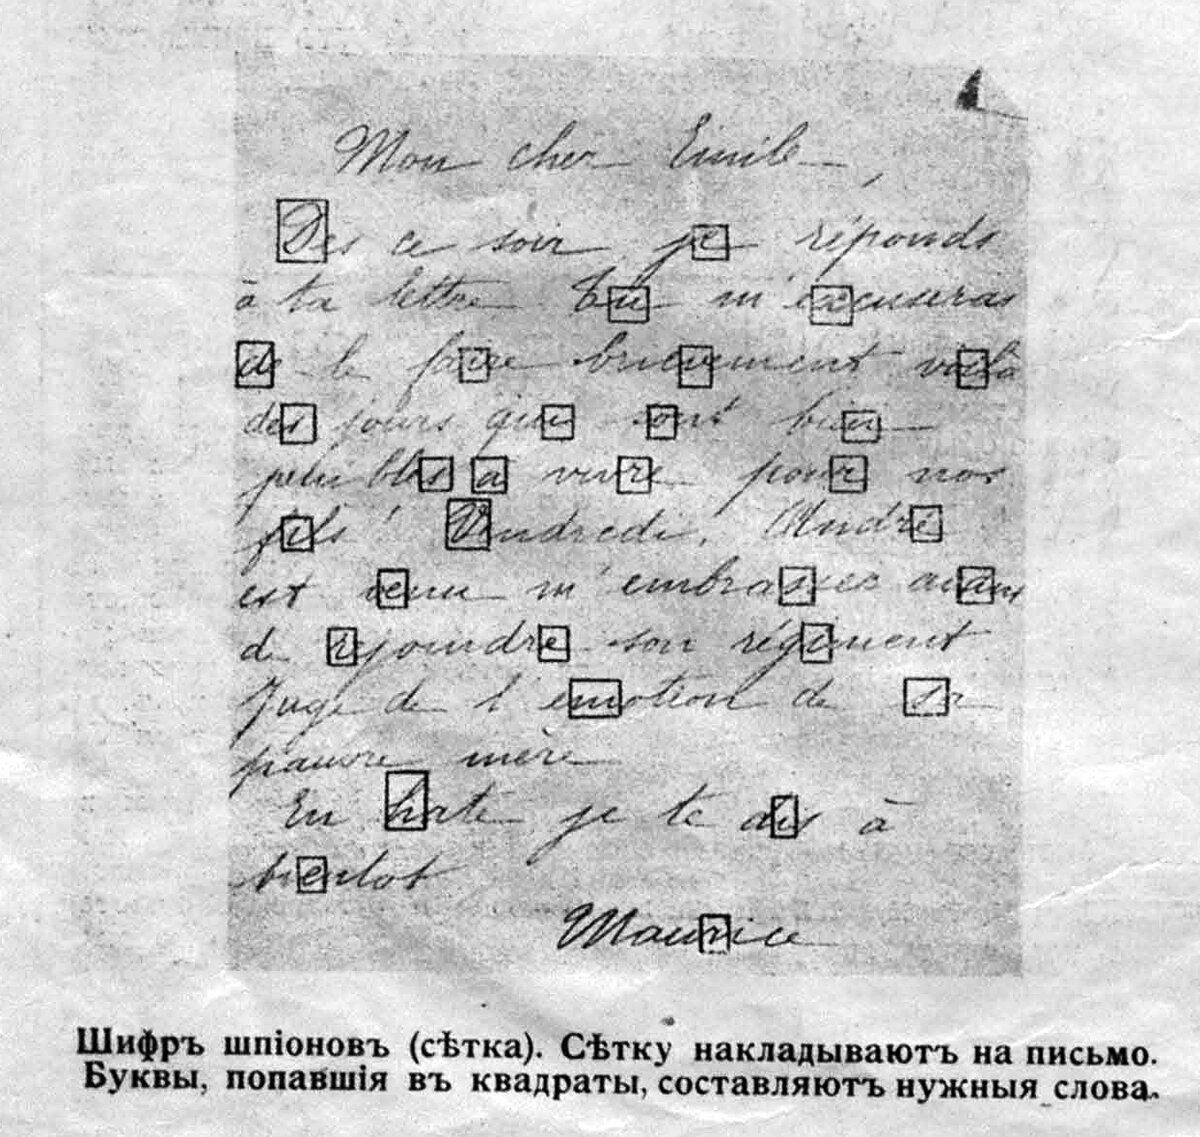 Mon cher Emile,
Dès ce soir je réponds
à ta lettre Tu m'excuseras
de le faire brievement voilà
des jours qui sont bien
penibles a vivre pour nos
fils! Vendredi, André
est venu m'embrasser avant
de rejoindre son régiment
Juge de l'émotion de sa
pauvre mère
En hate je te dis à
bientot
Maurice
Шифръ шпіоновъ (сѣтка). Сѣтку накладываютъ на письмо.
Буквы, попавшія въ квадраты, составляютъ нужныя слова.